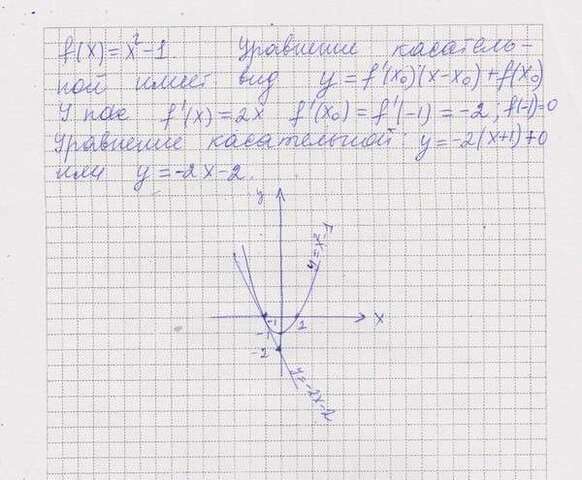 f(x) = x² - 1 Уравнение касатель-
ной имеет вид y = f'(x₀)(x-x₀) + f(x₀)
У нас f'(x) = 2x f'(x₀) = f'(-1) = -2; f(-1)=0
Уравнение касательной: y = -2(x+1)+0
или y = -2x-2.
y
y = x²-1
-1
1
x
-1
-2
y = -2x-2